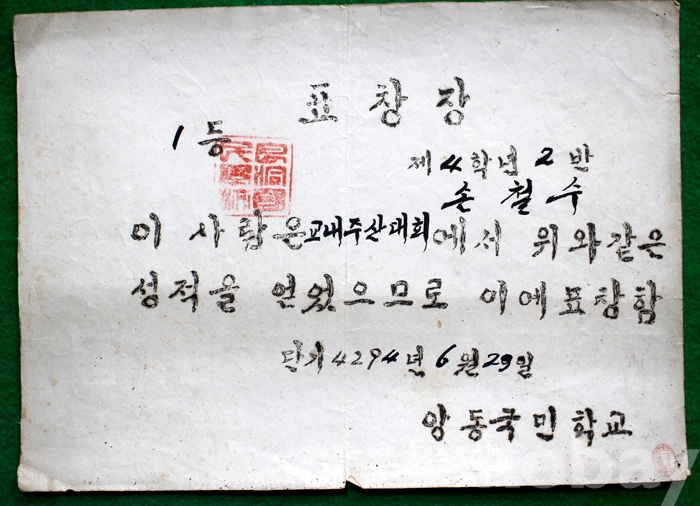 표창장
1등
제4학년 2반
손철수
이 사람은 교내주산대회에서 위와같은
성적을 얻었으므로 이에표창함
단기4294년 6월29일
양동국민학교